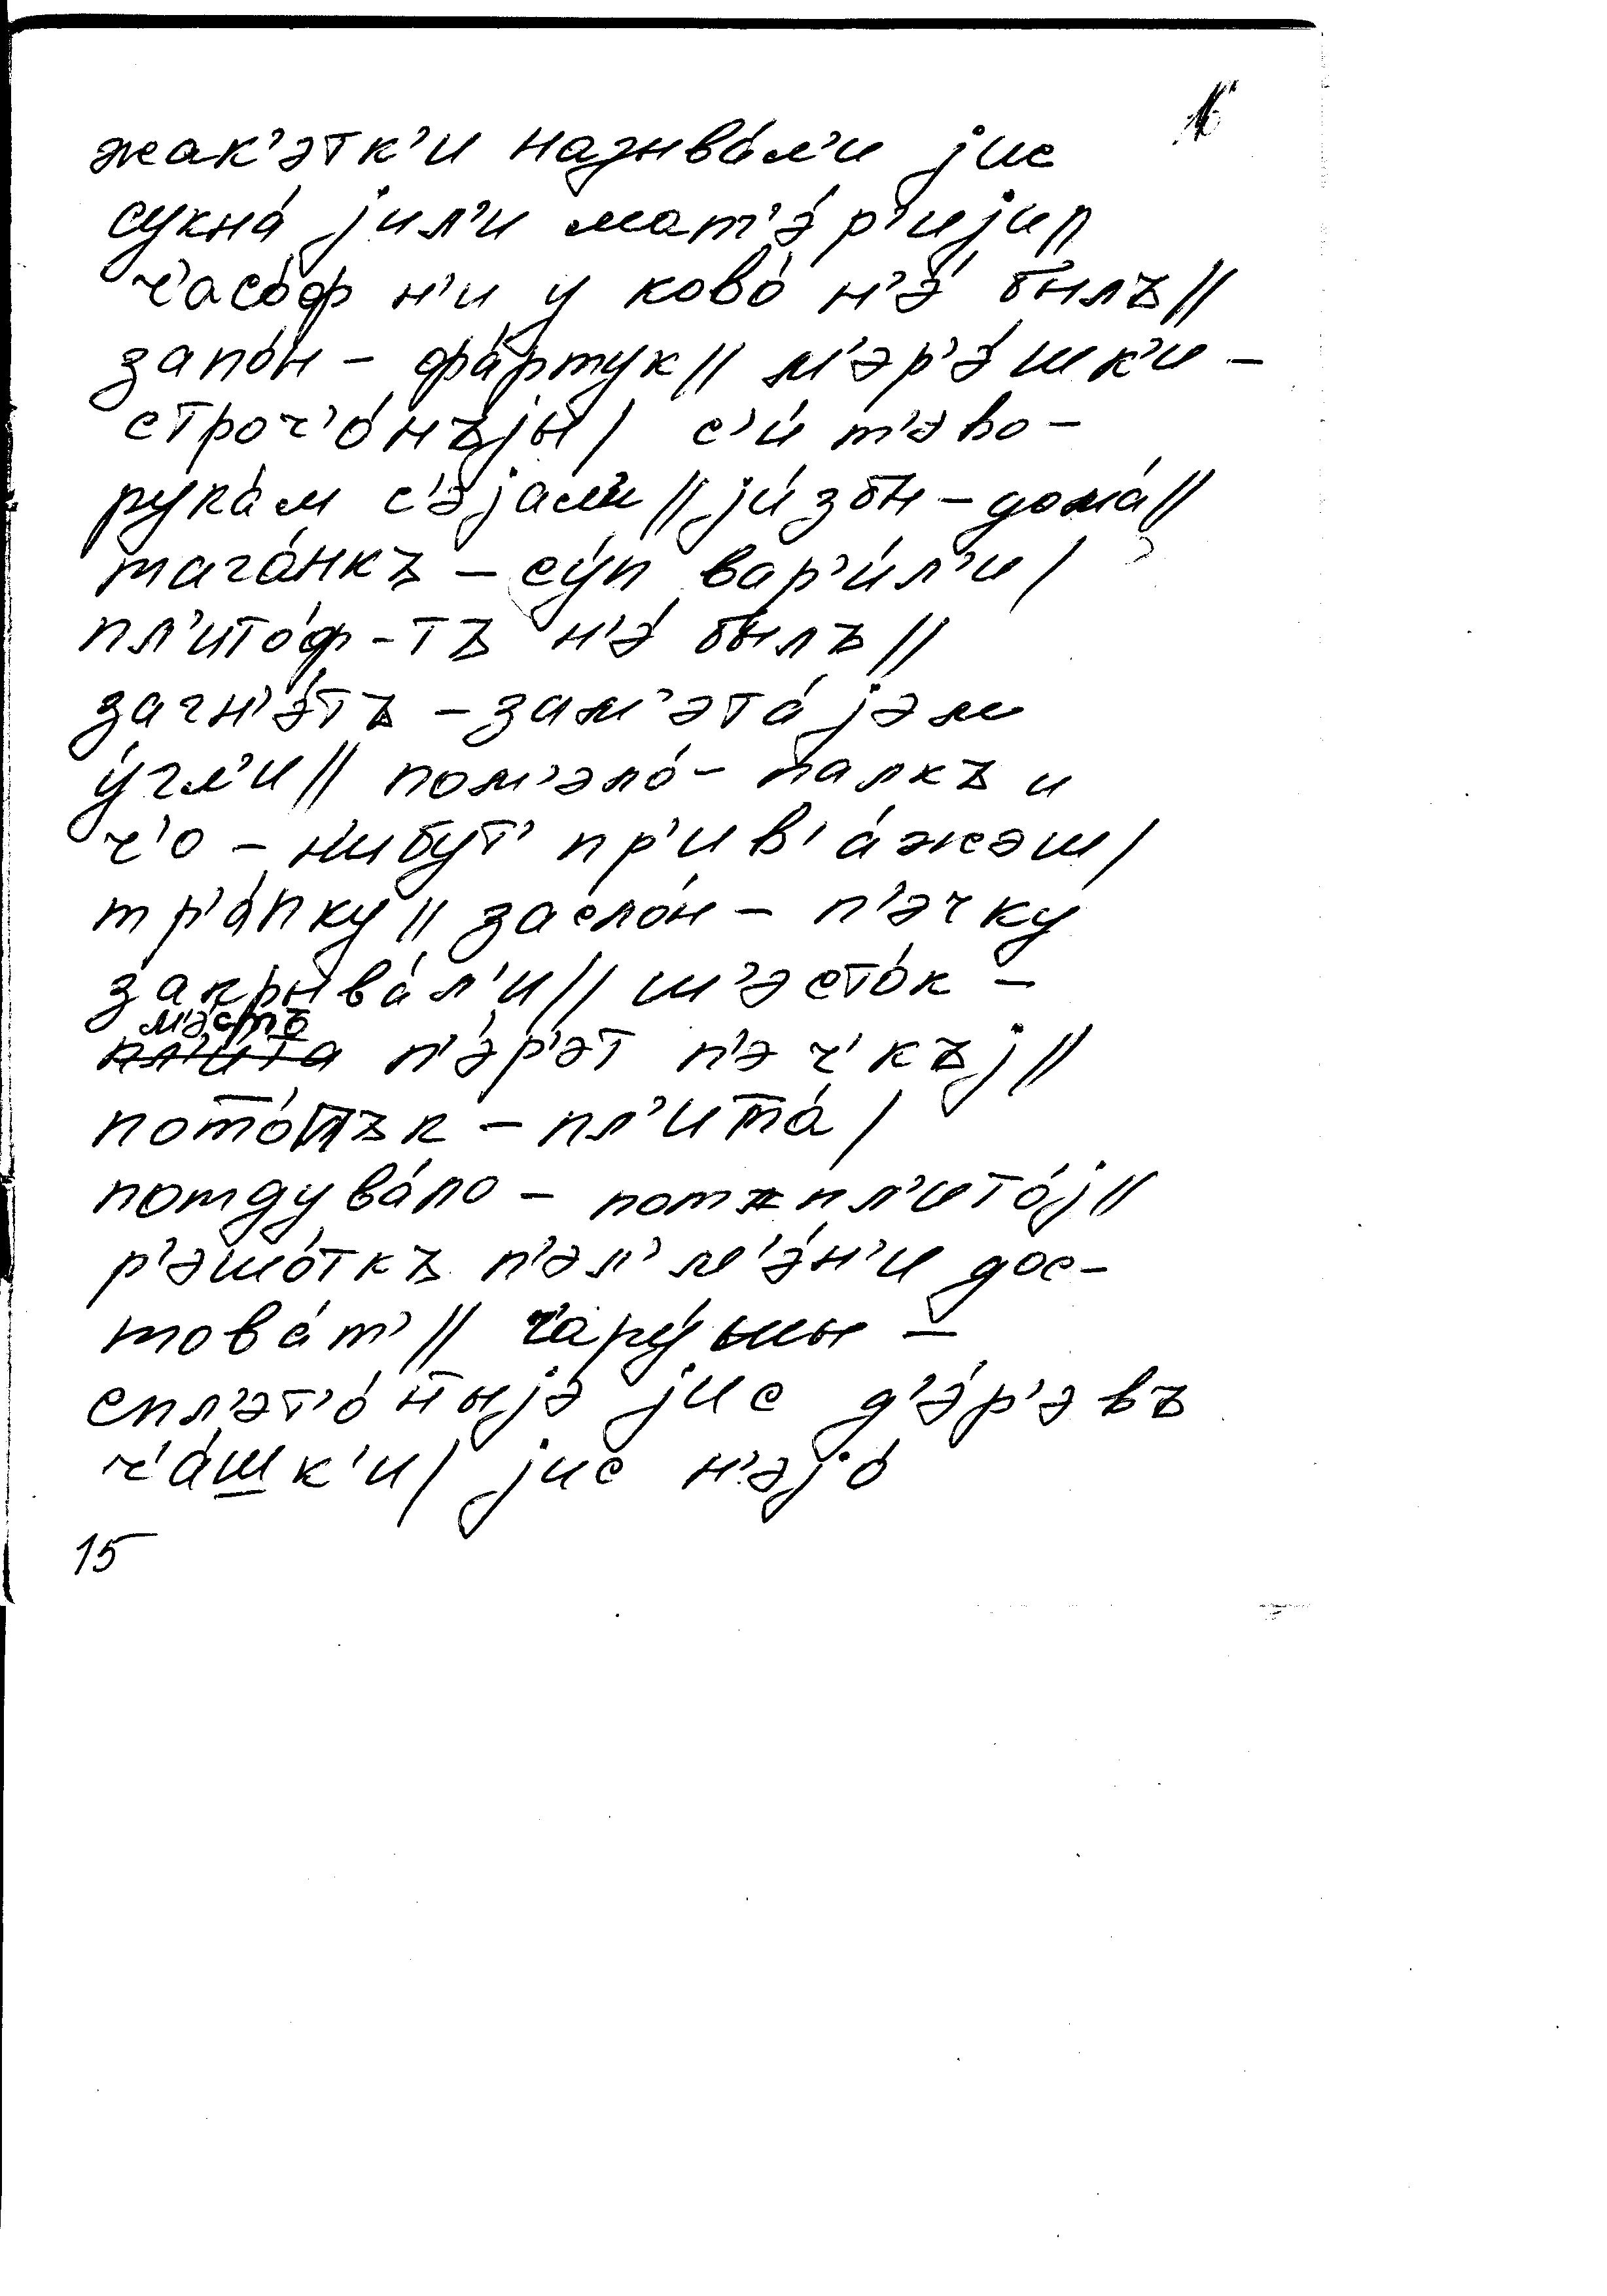 16
жак'этк'и называ́л'и jис
сукна́ jил'и мат'э́р'иjи //
ч'асо́ф н'и у ково́ н'э́ былъ //
запо́н – фа́ртук // м'эр'э́шк'и –
строч'о́нъjы / с'и́т'эво –
рука́м с'э́jали // jи́збы – дома́ //
тага́нкъ – су́п вар'и́л'и /
пл'ито́ф-тъ н'э́ былъ //
загн'э́тъ – зам'эта́jэм
у́гл'и // пом'эло́ – палкъ и
ч'о-н'ибут' пр'ив'а́жэш /
тр'а́пку // засло́н – п'эчку
закрыва́л'и // ш'эсто́к –
м'эстъ
пл'ита п'э́р'эт п'эч'къj //
пото́лък – пл'ита́ /
потдува́ло – пот пл'ито́j //
р'эшо́ткъ п'эл'м'э́н'и дос-
това́т' // ч'ару́шы –
спл'эт'о́ныjэ jис д'э́р'эвъ
ч'а́шк'и / jис н'эjо́
15